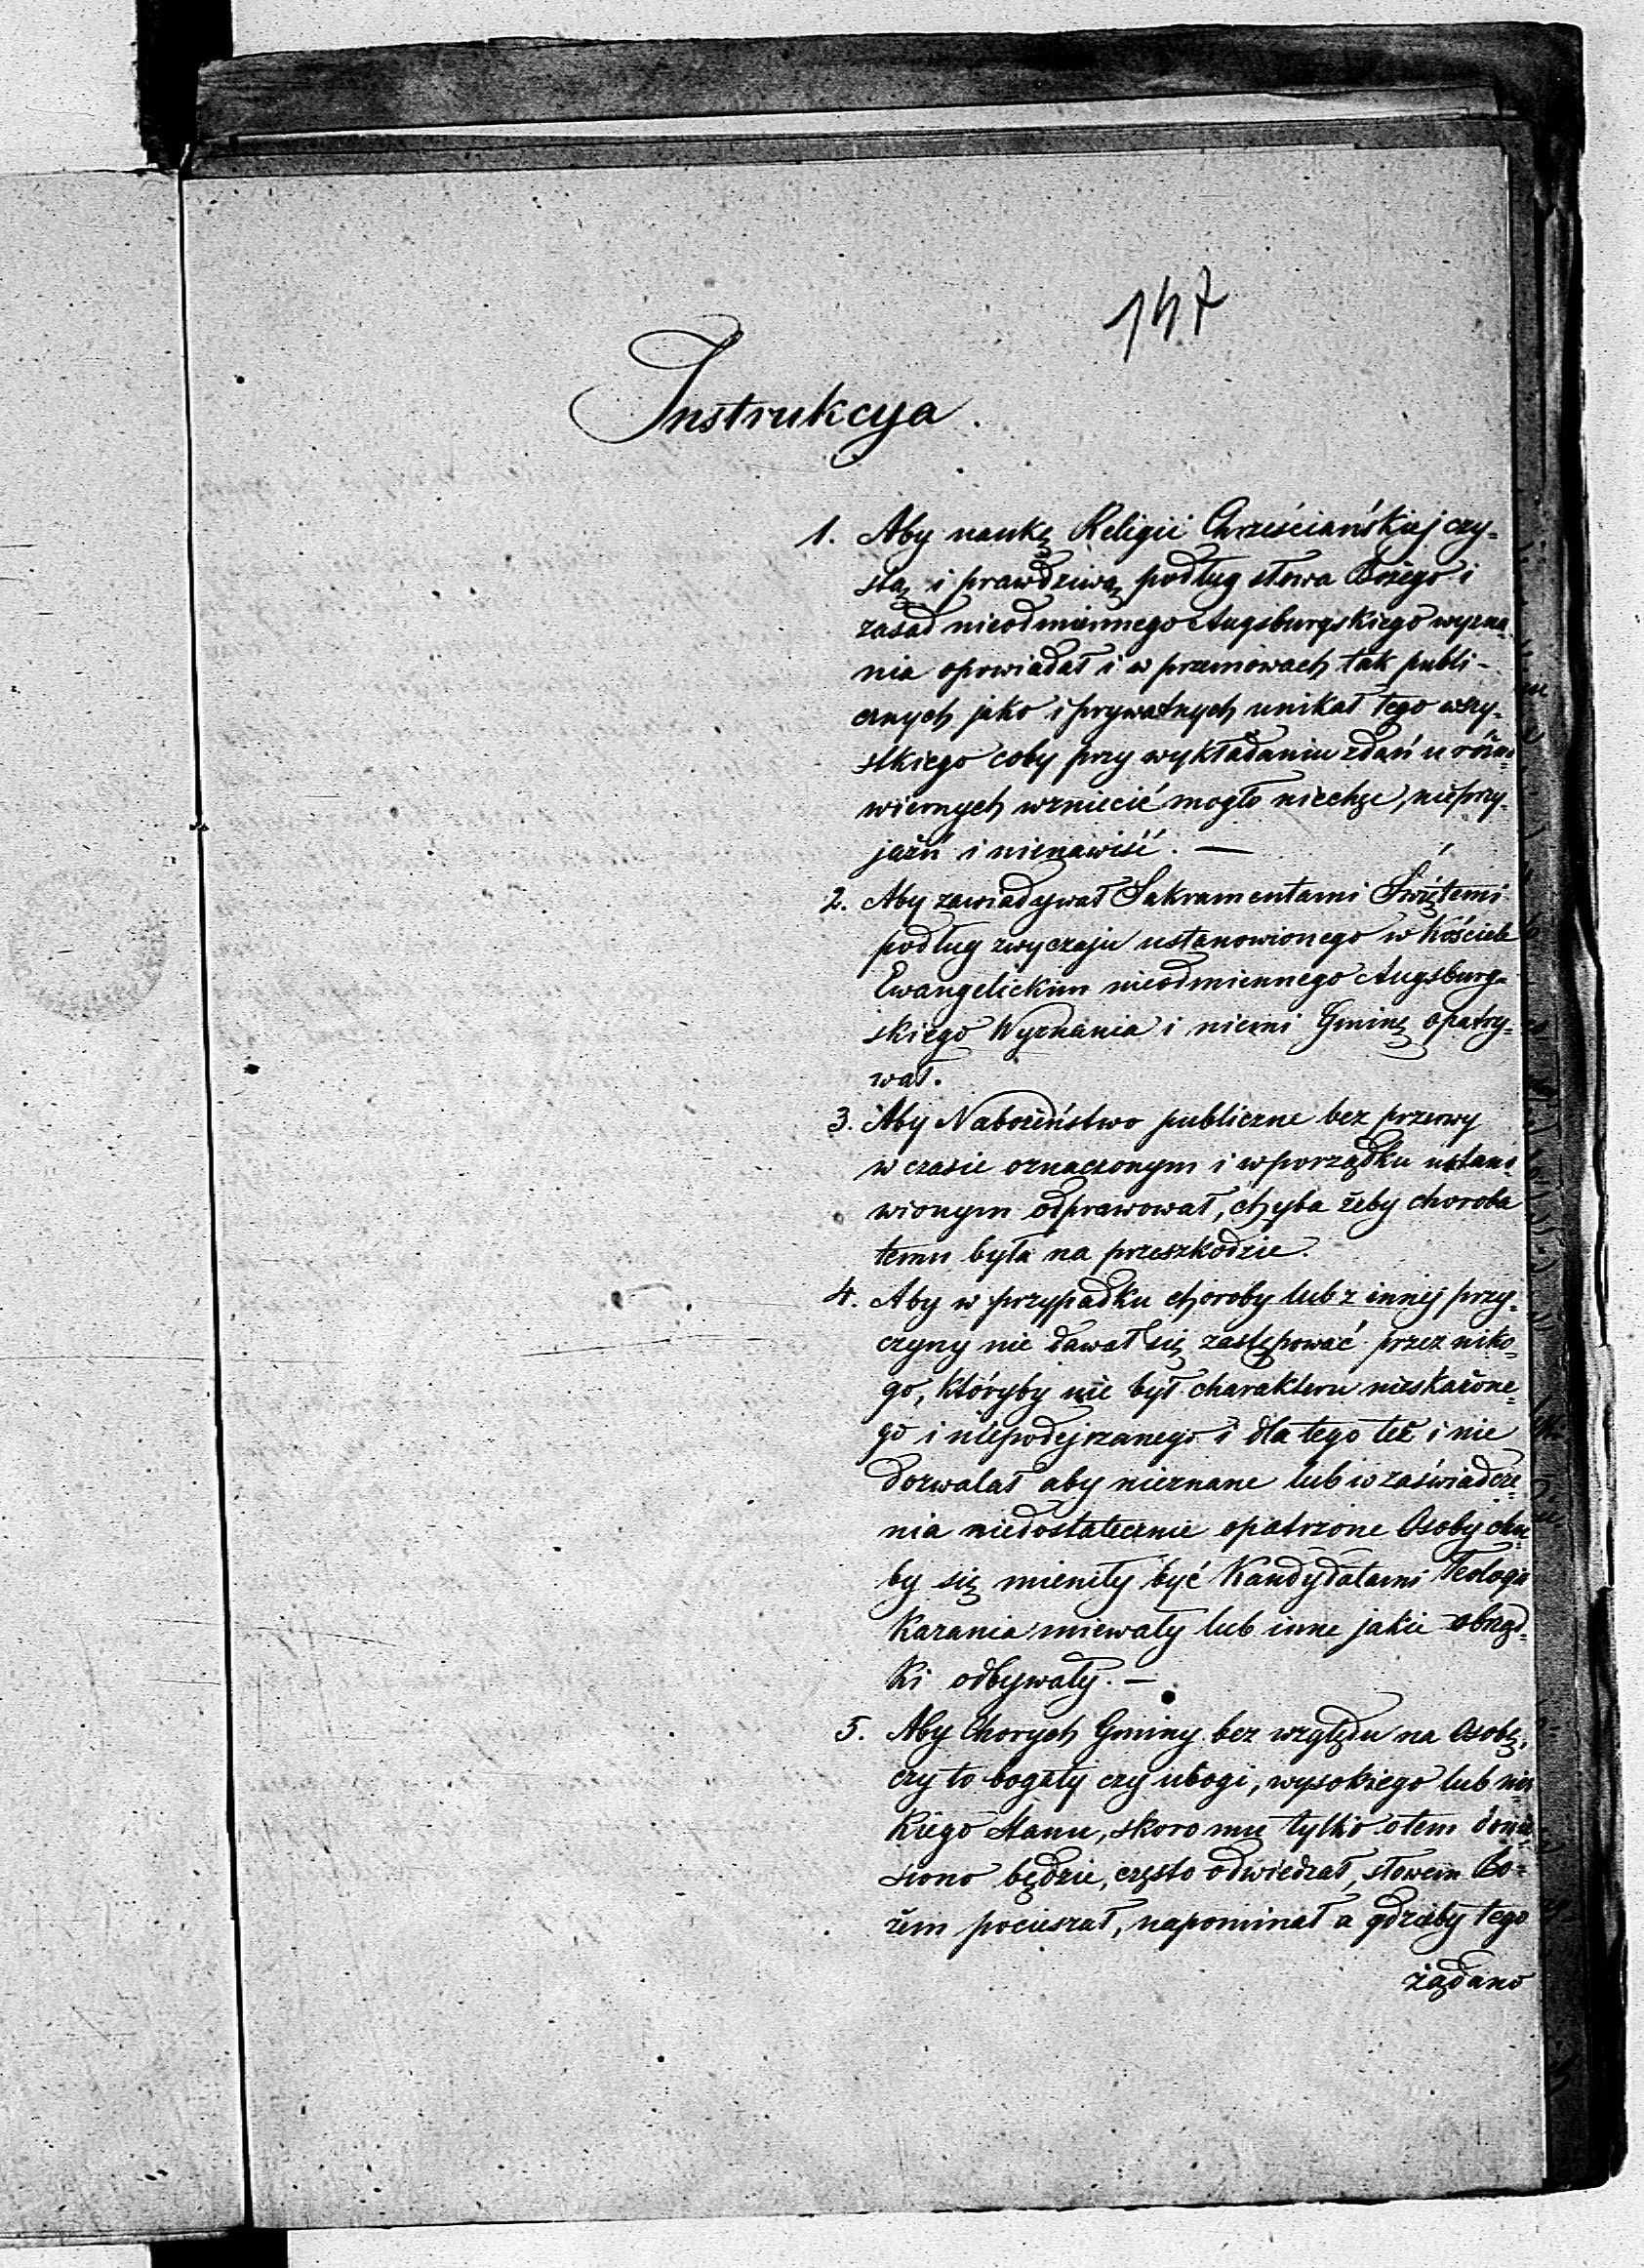 147
Instrukcya.
1. Aby naukę Religii Chrześciańskiej czy-
stą i prawdziwą podług słowa Bożego i
zasad nieodmiennego Augsburgskiego wyzna-
nia opowiadał i w przemowach tak publi-
cznych jako i prywatnych unikał tego wszy-
stkiego coby przy wykładaniu zdań u różno-
wiernych wzniecić mogło niechęć, nieprzy-
jaźń i nienawiść. —
2. Aby zawiadywał Sakramentami Świętemi
podług zwyczaju ustanowionego w Kościele
Ewangelickim nieodmiennego Augsburg-
skiego Wyznania i niemi Gminę opatry-
wał.
3. Aby Nabożeństwo publiczne bez przerwy
w czasie oznaczonym i w porządku ustano-
wionym odprawował, chyba żeby choroba
temu była na przeszkodzie.
4. Aby w przypadku choroby lub z innej przy-
czyny nie dawał się zastępować przez niko-
go, któryby nie był charakteru nieskażone-
go i niepodejrzanego i dla tego też i nie
dozwalał aby nieznane lub w zaświadcze-
nia niedostatecznie opatrzone Osoby cho-
by się mieniły być Kandydatami Teologii
Kazania miewały lub inne jakie obrząd-
ki odbywały. —
5. Aby Chorych Gminy bez względu na Osobę,
czy to bogaty czy ubogi, wysokiego lub niz-
kiego Stanu, skoro mu tylko o tem donie-
siono będzie, często odwiedzał, słowem Bo-
żem pocieszał, napominał a gdzieby tego
żądano